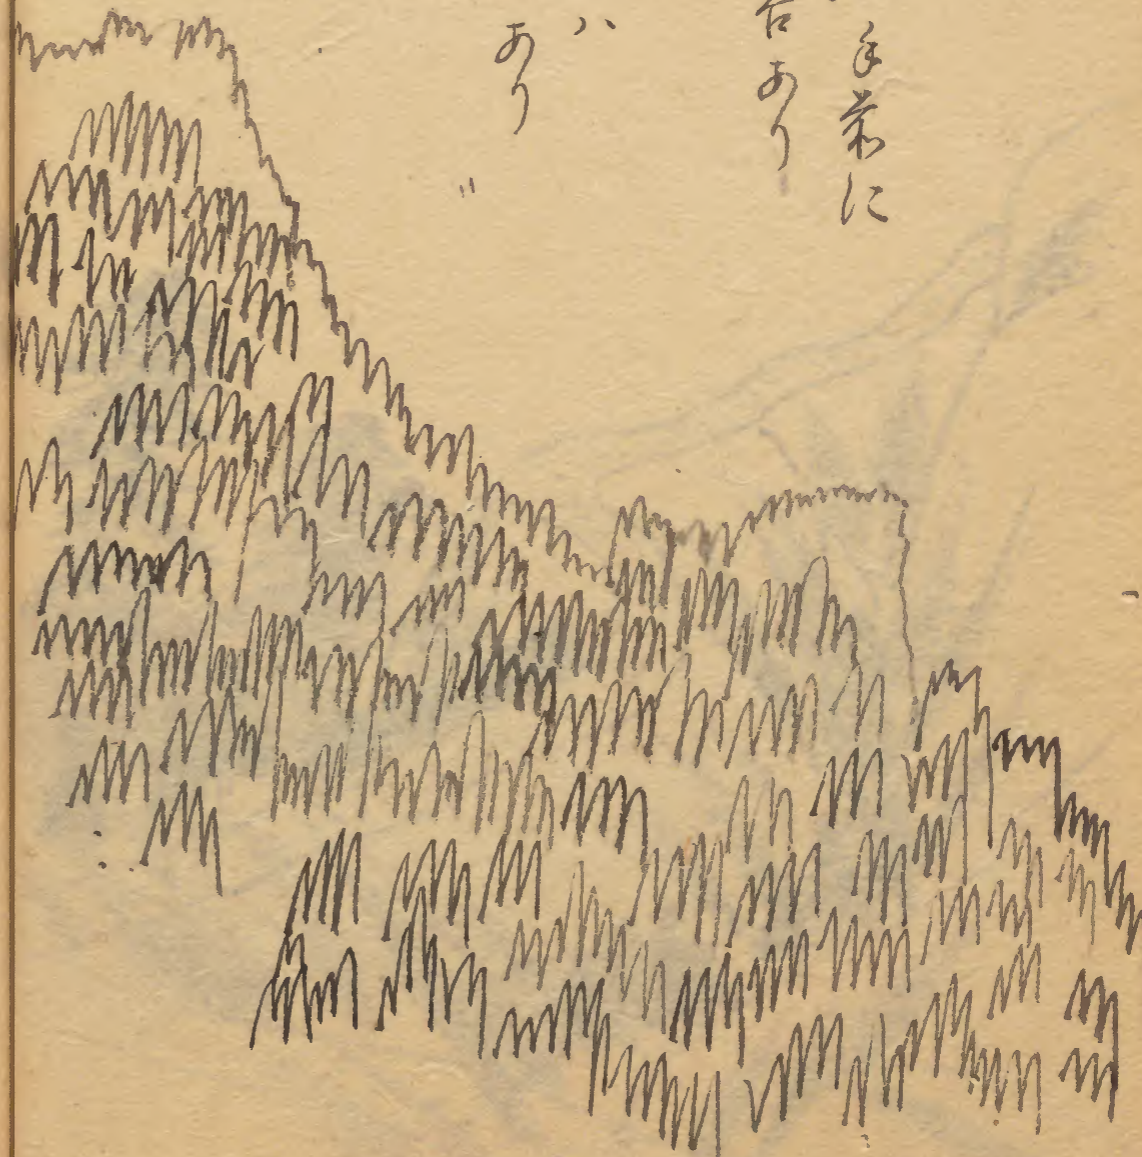 手前に
台あり
ハ
あり
〃